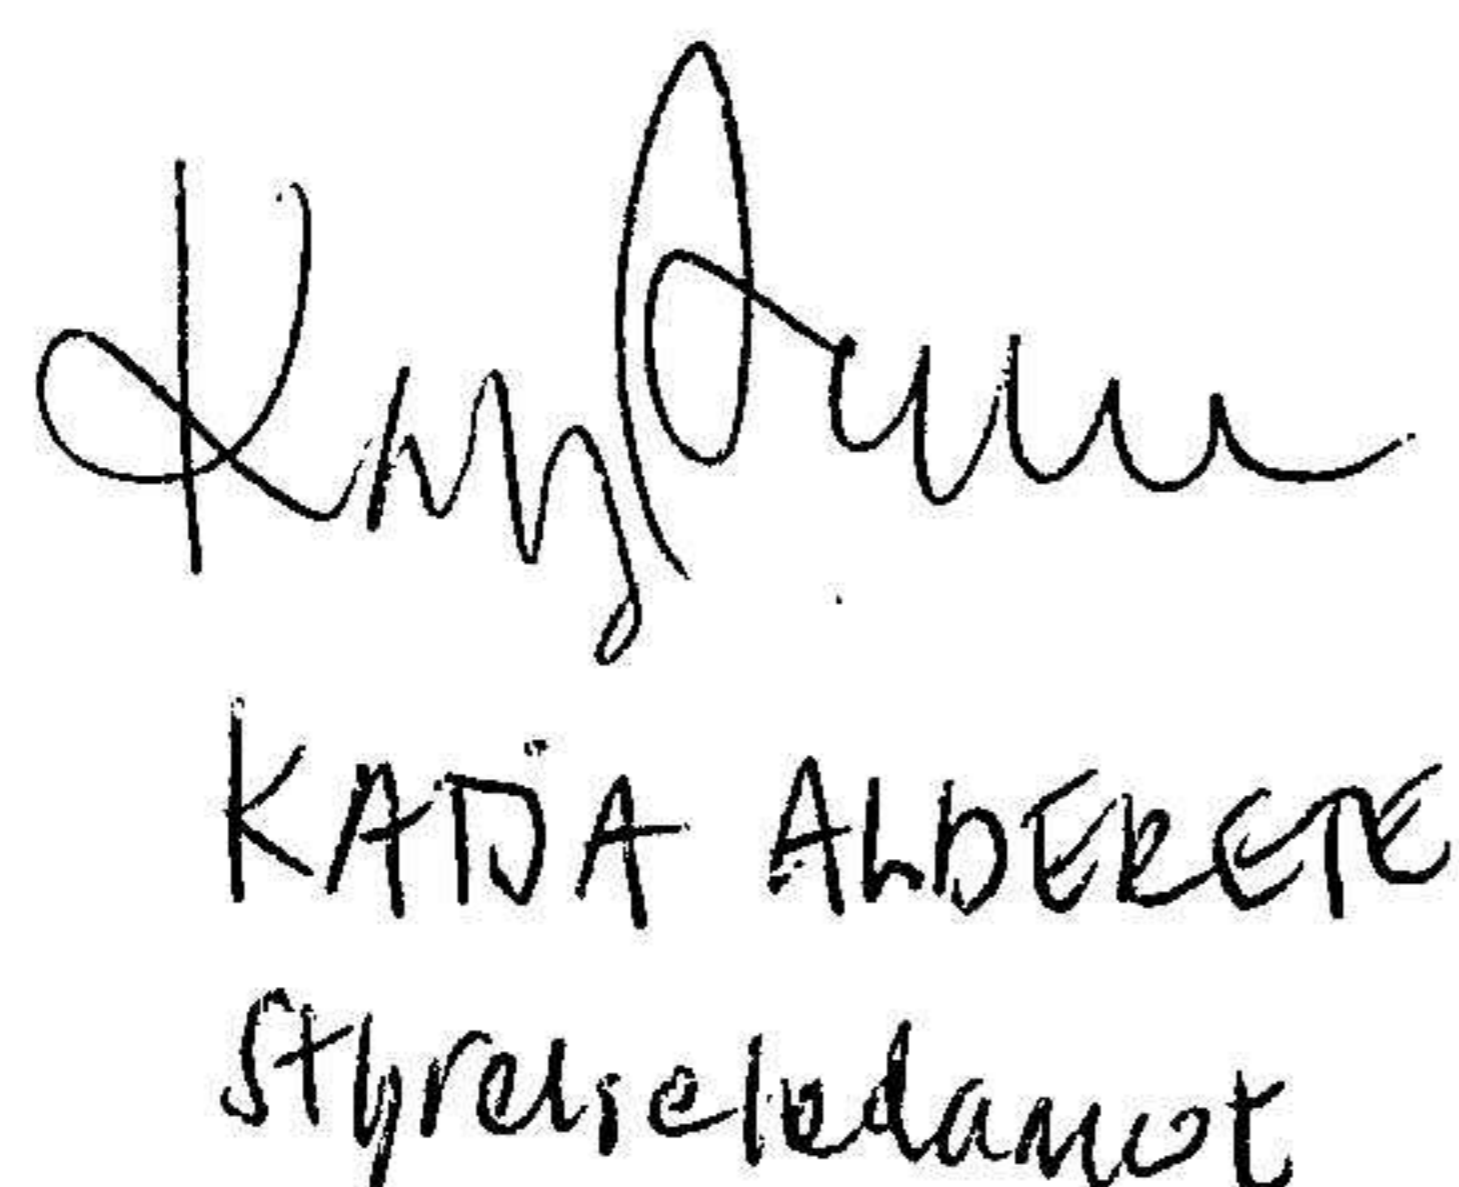 KATJA ALDERETE
Styrelseledamot